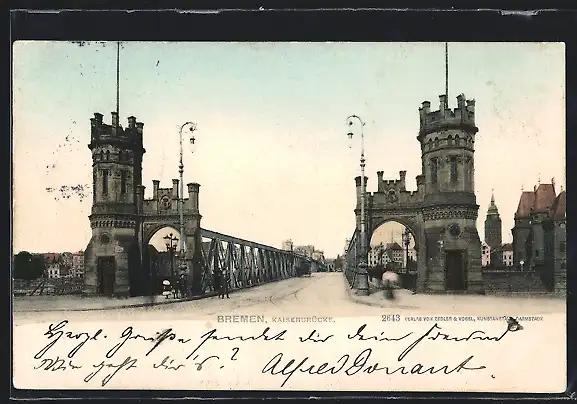 BREMEN, KAISERBRÜCKE. 2643 VERLAG VON ZEDLER & VOGEL, KUNSTANSTALT, DARMSTADT.
Herzl. Grüsse sendet dir dein Freund
Wie geht dir's? Alfred Donant.